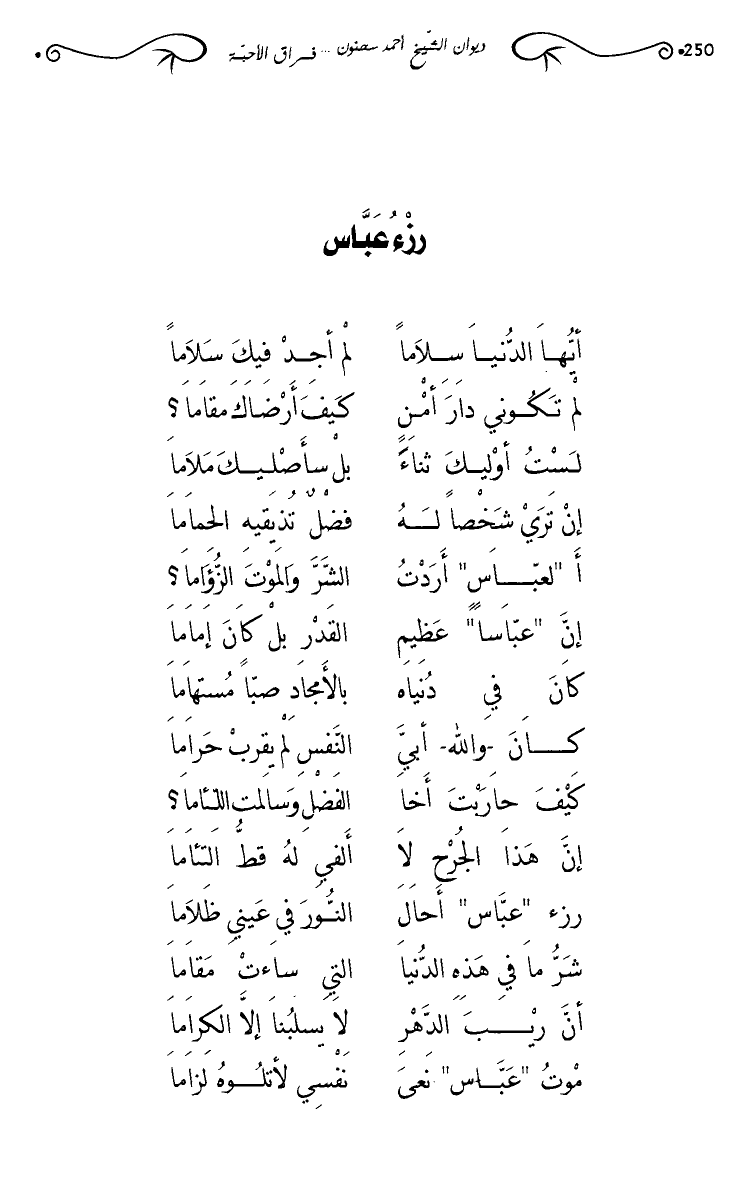 250 ديوان الشّيخ أحمد سحنون ... فراق الأحبّة
رزْءُ عَبَّاس
أيُّها الدُّنيا سلاماً لمْ أجدْ فيكَ سَلاَماً
لمْ تَكُوني دارَ أمْنٍ كَيفَ أَرْضاكَ مقاما؟
لَسْتُ أوْليكَ ثناءً بلْ سأَصْليكَ مَلاَما
إنْ تَرَيْ شَخْصاً لَهُ فضْلٌ تُذيقيه الحماما
أَ "لعبّاس" أَرَدْتُ الشَّرَّ والمَوْتَ الزُّؤاما؟
إنَّ "عبّاساً" عَظيم القَدْر بلْ كانَ إماما
كانَ في دُنياه بالأَمجاد صبّاً مُستهاما
كانَ -والله- أبيَّ النَّفسِ لمْ يقربْ حَراما
كَيْفَ حارَبْتَ أخا الفضْلِ وسَالمت اللئاما؟
إنَّ هَذا الجُرْح لاَ ألفي لهُ قطُّ التئاما
رزء "عبَّاس" أَحالَ النُّورَ في عَيني ظلاَما
شَرُّ ما في هَذه الدُّنيا التي ساءتْ مَقاما
أنَّ ريْبَ الدَّهْرِ لاَ يسلبُنا إلاَّ الكراما
مْوتُ "عَبَّاس" نَعىَ نَفْسي لأتلُوهُ لزاما